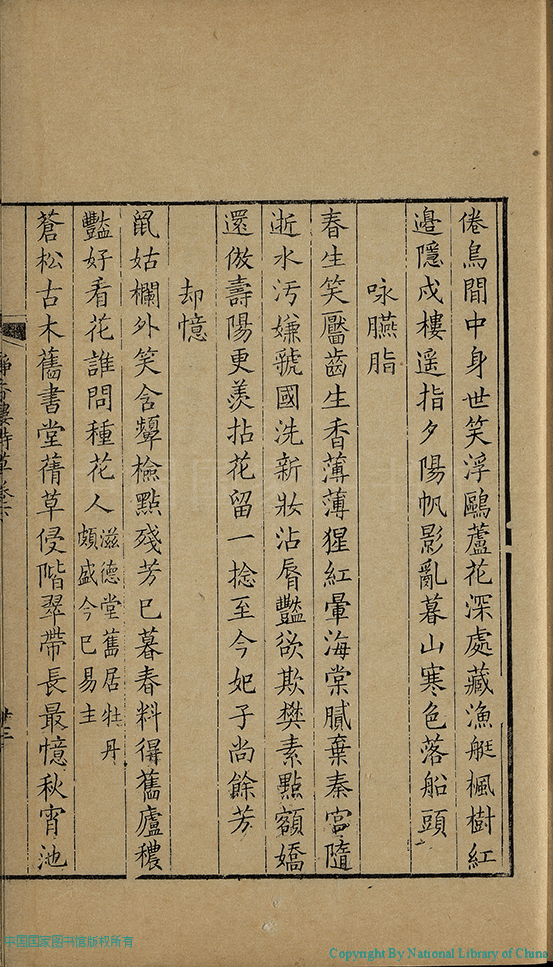 倦鳥閒中身世笑浮鷗蘆花深處藏漁艇楓樹紅
邉隱戍樓遥指夕陽帆影亂暮山寒色落船頭
咏臙脂
春生笑靨齒生香薄薄猩紅暈海棠膩棄秦宮隨
逝水汚嫌虢國洗新妝沾脣豔欲欺樊素點額嬌
還倣壽陽更羨拈花留一捻至今妃子尚餘芳
却憶
鼠姑欄外笑含顰檢點殘芳已暮春料得舊廬穠
豔好看花誰問種花人滋德堂舊居牡丹
頗盛今已易主
蒼松古木舊書堂蒨草侵階翠帶長最憶秋宵池
中国国家图书馆版权所有
Copyright By National Library of China